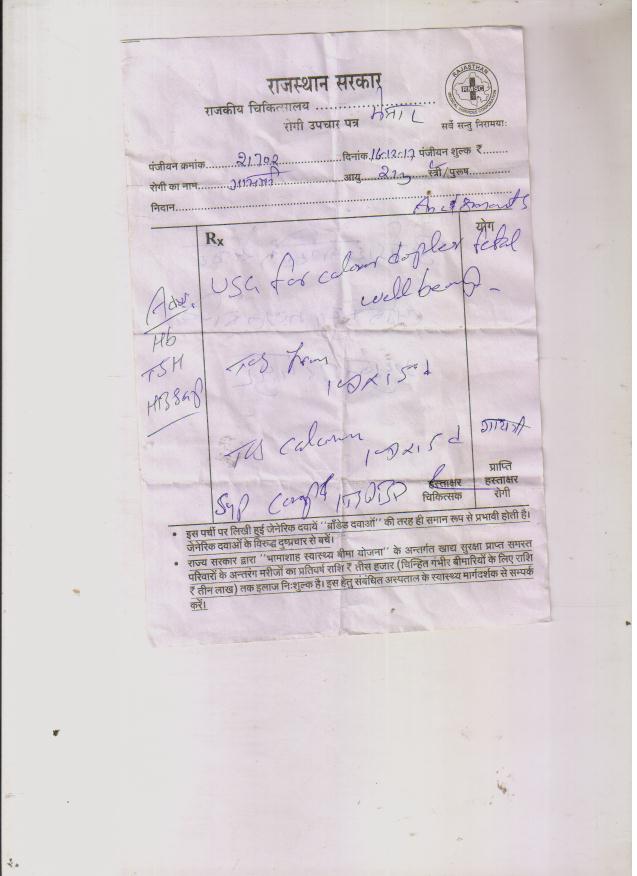 राजस्थान सरकार
RAJASTHAN
RMSC
राजकीय चिकित्सालय ....................
रोगी उपचार पत्र
सर्वे सन्तु निरामयाः
पंजीयन क्रमांक.....21702.....दिनांक.16.12.17 पंजीयन शुल्क ₹........
रोगी का नाम....गायत्री....आयु....21y....स्त्री/पुरूष............
निदान............
Rx
योग
Adv.
USG for colour dopler fetal
well being
Hb
TSH
HBSag
Tab
15 d
Tab calcium
15 d
गायत्री
Syp
1TSF BD
हस्ताक्षर
चिकित्सक
प्राप्ति
हस्ताक्षर
रोगी
• इस पर्ची पर लिखी हुई जेनेरिक दवायें "ब्राँडेड दवाओं" की तरह ही समान रूप से प्रभावी होती है।
जेनेरिक दवाओं के विरुद्ध दुष्प्रचार से बचें।
• राज्य सरकार द्वारा "भामाशाह स्वास्थ्य बीमा योजना" के अन्तर्गत खाद्य सुरक्षा प्राप्त समस्त
परिवारों के अन्तरंग मरीजों का प्रतिवर्ष राशि ₹ तीस हजार (चिन्हित गंभीर बीमारियों के लिए राशि
₹ तीन लाख) तक इलाज निःशुल्क है। इस हेतु संबंधित अस्पताल के स्वास्थ्य मार्गदर्शक से सम्पर्क
करें।